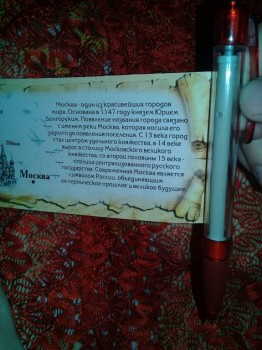 Москва - один из красивейших городов
мира. Основана в 1147 году князем Юрием
Долгоруким. Появление названия города связано
с именем реки Москва, которая носила его
задолго до появления поселения. С 13 века город
стал центром удельного княжества, в 14 веке
вырос в столицу Московского великого
княжества, со второй половины 15 века -
столица централизованного русского
государства. Современная Москва является
символом России, объединяющим
ее героическое прошлое и великое будущее.
Москва